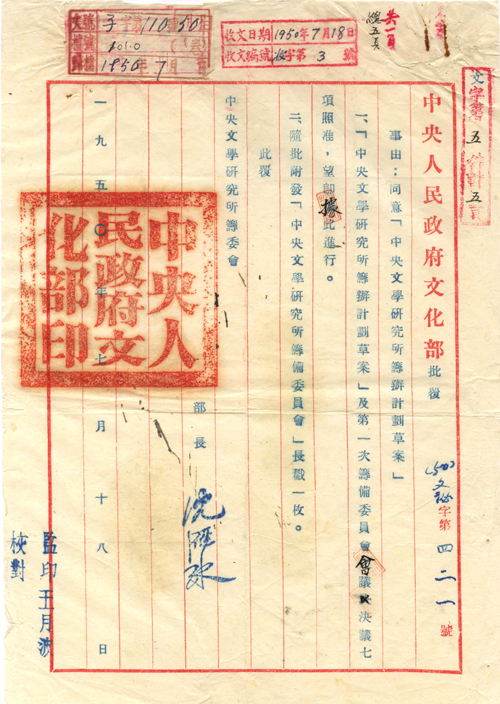 共一頁
總五頁
收文日期 1950年7月18日
收文編號 收字第 3 號
1950年7月
中央人民政府文化部批覆
(50)文秘字第四二一號
事由:同意「中央文學研究所籌辦計劃草案」
一、「中央文學研究所籌辦計劃草案」及第一次籌備委員會會議決議七
項照准,望即據此進行。
二、隨批附發「中央文學研究所籌備委員會」長戳一枚。
此覆
中央文學研究所籌委會
部長 沈雁冰
一九五〇年七月十八日
中央人
民政府文
化部印
監印 王月波
校對